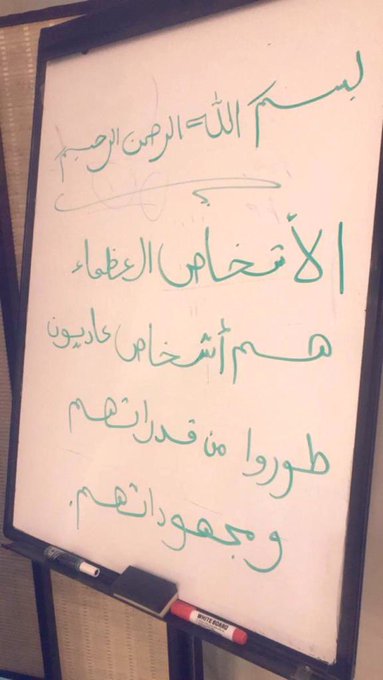 بسم الله الرحمن الرحيم
الأشخاص العظماء
هم أشخاص عاديون
طوروا من قدراتهم
ومجهوداتهم.
WHITE BOARD